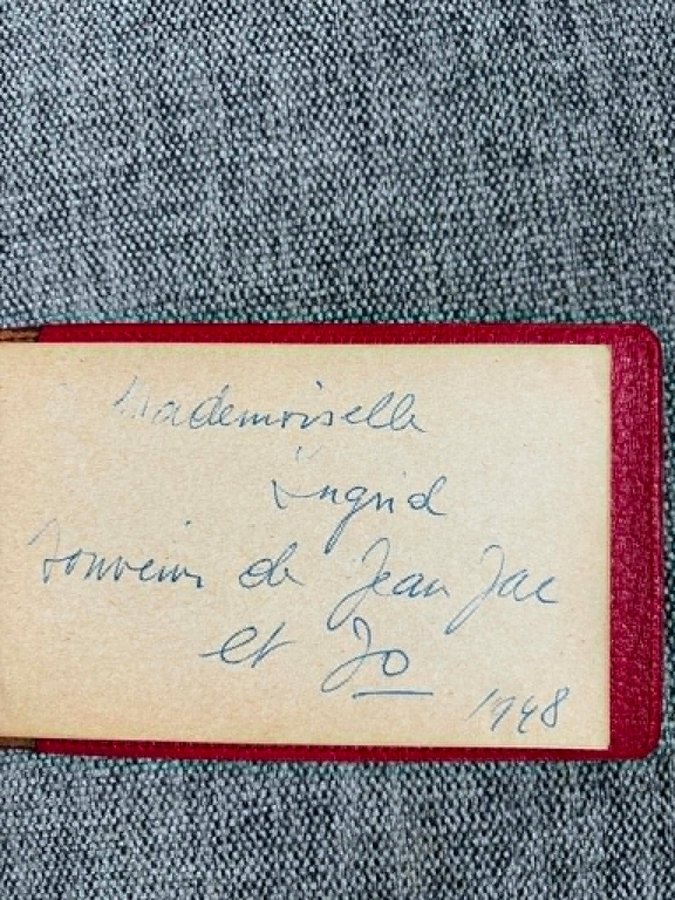 Mademoiselle
Ingrid
souvenir de Jean Jac
et Jo
1948